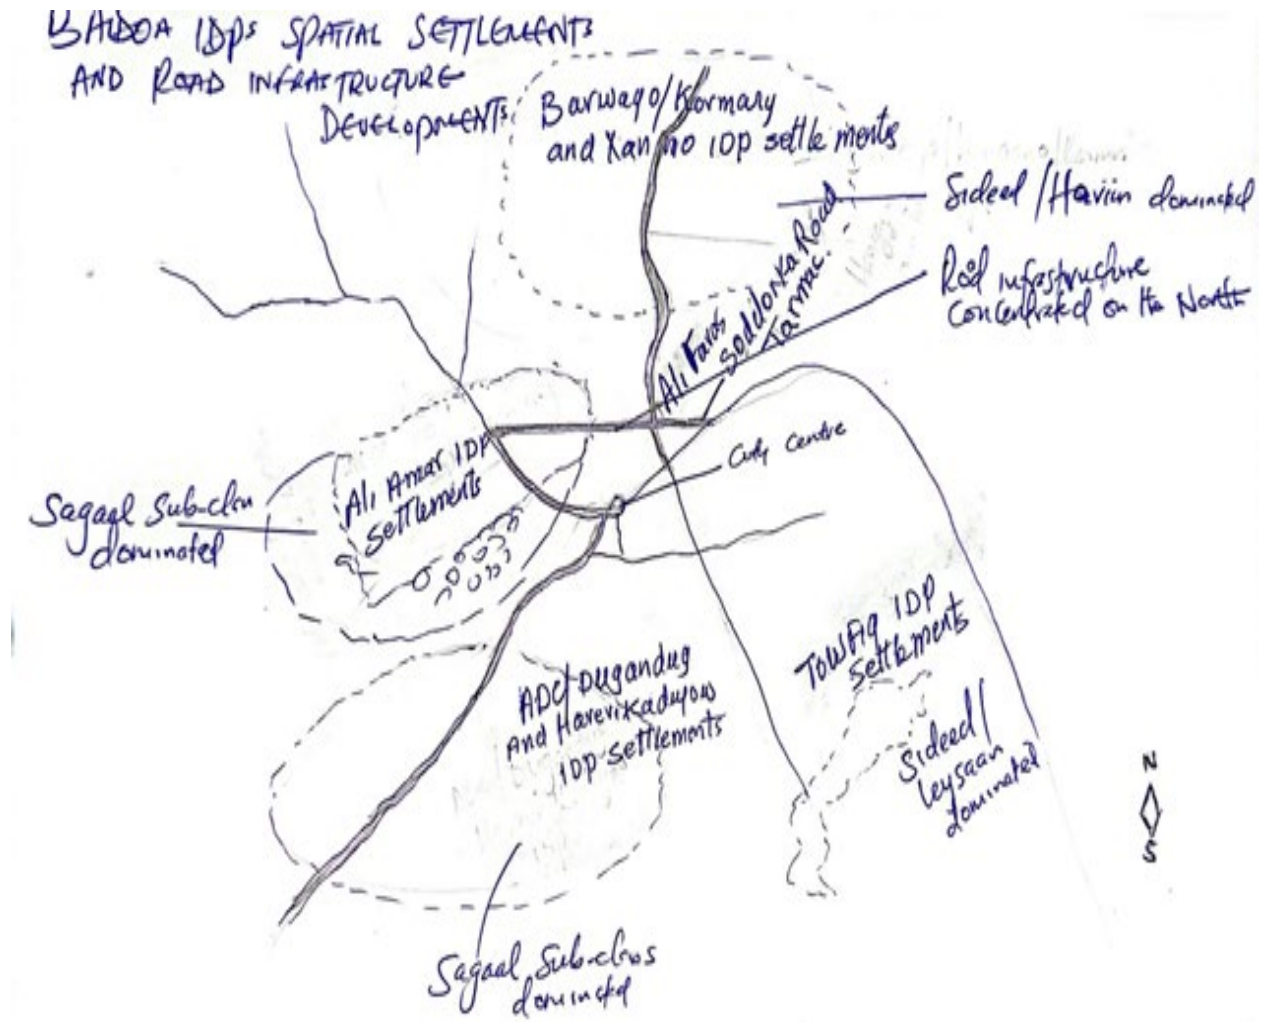 BAIDOA IDPs SPATIAL SETTLEMENTS
AND ROAD INFRASTRUCTURE
DEVELOPMENTS
Barwaqo/Kormary
and Xanno IDP settlements
Sideed/Hariin dominated
Road infrastructure
concentrated on the North
Ali Fardh
Soddonka Road
Tarmac.
City Centre
Ali Amar IDP
Settlements
Sagaal Sub-clan
dominated
TOWFIQ IDP
Settlements
Sideed/
leysaan
dominated
ADC/Dugandug
And Hareri Kaduyow
IDP Settlements
N
S
Sagaal Sub-clans
dominated